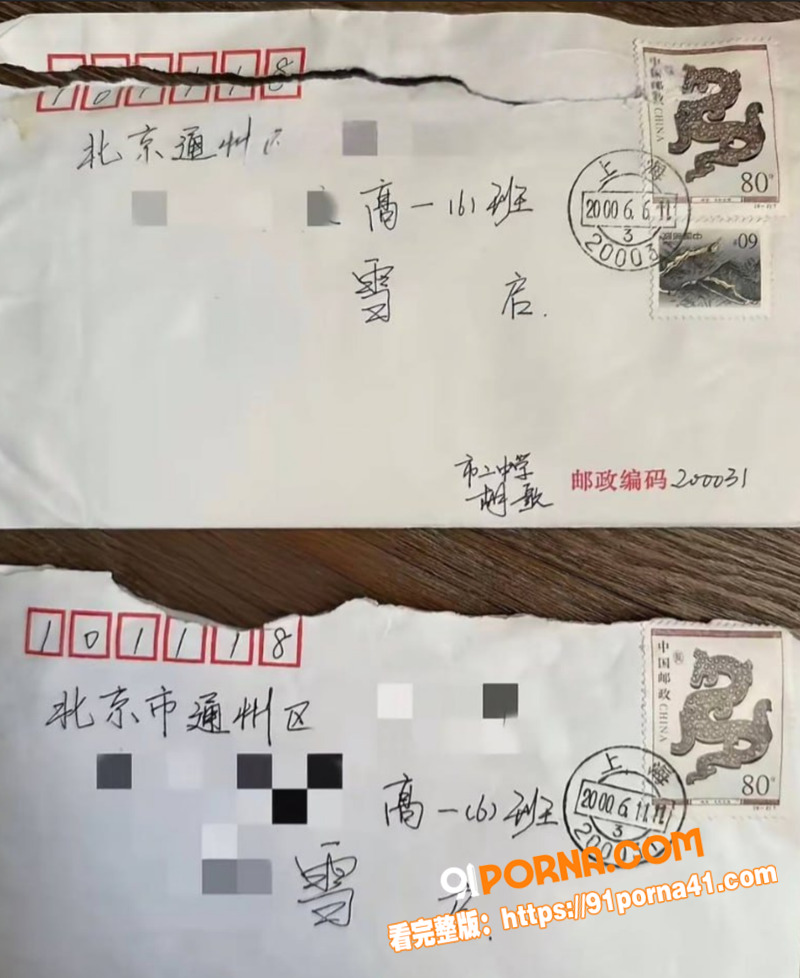 101118
北京通州区
高一(6)班
雪 启.
中国邮政 CHINA
80分
上海
2000.6.6.11
3
20003
中国邮政
60分
市二中学
胡歌
邮政编码 200031
101118
北京市通州区
高一(6)班
雪 启.
中国邮政 CHINA
80分
上海
2000.6.11.11
3
91PORNA.COM
看完整版：https://91porna41.com